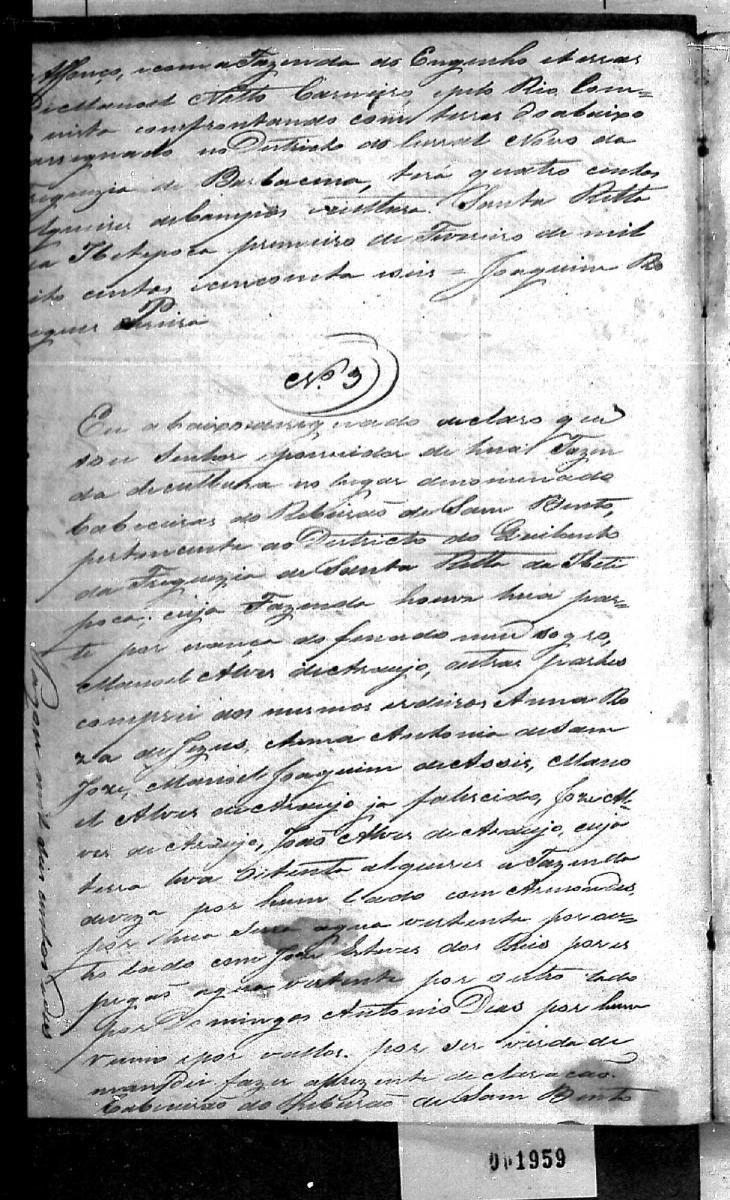 Affonço, e com a Fazenda do Engenho eterras
de Manoel Netto Carneiro, e pelo Rio
confrontando com terras do abaixo
assegnado no Destricto do Curral Novo da
Freguezia de Barbacena, terá quatro centos
alqueires de Campos e cultura. Santa Ritta
da Ibitepoca primeiro de Fevereiro de mil
oito centos e cincoenta e seis = Joaquim Ro
drigues Pereira
Nº 3
Eu abaixo assegnado declaro que
sou Senhor e possuidor de hua Fazen
da de cultura no lugar denominado
Cabeceiras do Ribeirão de Sam Bento,
pertencente ao Destricto do Quilombo
da Freguezia de Santa Ritta da Ibiti
poca; cuja Fazenda houve hua par-
te por erança do finado meu sogro,
Manoel Alves de Araujo, outras partes
comprei dos mesmos erdeiros Anna Ro
za de Jezus, Anna Antonia de Sam
Joze, Manoel Joaquim de Assis, Mano
el Alves de Araujo ja falecido, Joze Al
ves de Araujo, João Alves de Araujo, cuja
terra leva oitenta alqueires a Fazenda
deviza por hum lado com
por hua Serra agua vertente por ou-
tro lado com Joze Esteves dos Reis por es
pegão agua vertente por outro lado
por Domingos Antonio Dias por hum
vallo e por vallos. por ser verdade
mandei fazer aprezente declaração.
Cabeceiras do Ribeirão de Sam Bento
Pagou mil
001959